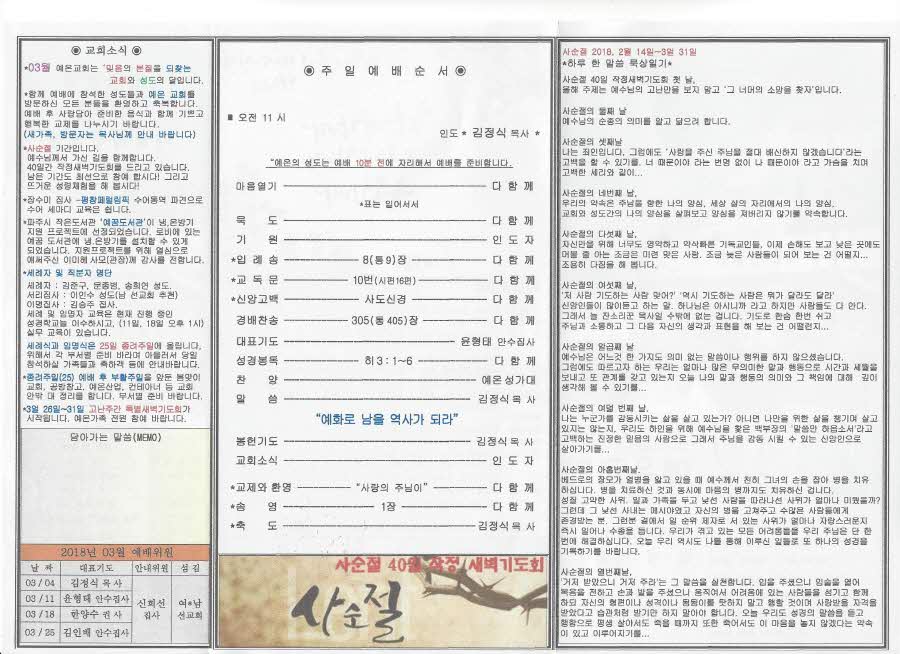 ◉ 교회소식 ◉
*03월 예온교회는 '믿음의 본질을 되찾는
교회와 성도의 달입니다.
*함께 예배에 참석한 성도들과 예온 교회를
방문하신 모든 분들을 환영하고 축복합니다.
예배 후 사랑담아 준비한 음식과 함께 기쁘고
행복한 교제를 나누시기 바랍니다.
(새가족, 방문자는 목사님께 안내 바랍니다)
*사순절 기간입니다.
예수님께서 가신 길을 함께합니다.
40일간 작정새벽기도를 드리고 있습니다.
남은 기간도 최선으로 참예 합시다! 그리고
뜨거운 성령체험을 해 봅시다!
*장수미 집사 -평창패럴림픽 수어통역 파견으로
수어 세마디 교육은 쉽니다.
*파주시 작은도서관 '예꿈도서관'이 냉,온방기
지원 프로젝트에 선정되었습니다. 로비에 있는
예꿈 도서관에 냉,온방기를 설치할 수 있게
되었습니다. 지원프로젝트를 위해 열심으로
애써주신 이미혜 사모(관장)께 감사를 전합니다.
*세례자 및 직분자 명단
세례자 : 김준구, 문종범, 송희연 성도.
서리집사 : 이인수 성도(남 선교회 추천)
이명집사 : 김승주 집사.
세례 및 임명자 교육은 현재 진행 중인
성경학교를 이수하시고, (11일, 18일 오후 1시)
실무 교육이 있습니다.
세례식과 임명식은 25일 종려주일에 올립니다.
위해서 각 부서별 준비 바라며 아울러서 당일
참석하실 가족들과 축하객 등에 안내바랍니다.
*종려주일(25) 예배 후 부활주일을 앞둔 봄맞이
교회, 공방창고, 예온산업, 컨테이너 등 교회
안팎 대 정리를 합니다. 부서별 준비 바랍니다.
*3월 26일~31일 고난주간 특별새벽기도회가
시작됩니다. 예온가족 전원 참예 바랍니다.
담아가는 말씀(MEMO)
2018년 03월 예배위원
날 짜 대표기도 안내위원 섬 김
03 / 04 김정식 목 사
03 / 11 윤형태 안수집사
03 / 18 한양수 권사
03 / 25 김인배 안수집사
신희선
집사
여*남
선교회
◉ 주 일 예 배 순 서 ◉
■ 오전 11 시
인도 * 김정식 목사 *
*예온의 성도는 예배 10분 전에 자리해서 예배를 준비합니다.
마음열기 다 함 께
*표는 일어서서
묵 도 다 함 께
기 원 인 도 자
*입 례 송 8(통9)장 다 함 께
*교 독 문 10번(시편16편) 다 함 께
*신앙고백 사도신경 다 함 께
경배찬송 305(통405)장 다 함 께
대표기도 윤형태 안수집사
성경봉독 히3 : 1~6 다 함 께
찬 양 예온성가대
말 씀 김정식 목 사
"예화로 남을 역사가 되라"
봉헌기도 김정식 목 사
교회소식 인 도 자
*교제와 환영 "사랑의 주님이" 다 함 께
*송 영 1장 다 함 께
*축 도 김정식 목 사
사순절 40일 작정 새벽기도회
사순절
사순절 2018. 2월 14일~3월 31일
*하루 한 말씀 묵상일기*
사순절 40일 작정새벽기도회 첫 날.
올해 주제는 예수님의 고난만을 보지 말고 '그 너머의 소망을 찾자'입니다.
사순절의 둘째 날
예수님의 순종의 의미를 알고 닮으려 합니다.
사순절의 셋째날
나는 죄인입니다. 그럼에도 '사랑을 주신 주님을 절대 배신하지 않겠습니다'라는
고백을 할 수 있기를. 너 때문이야 라는 변명 없이 나 때문이야 라고 가슴을 치며
고백한 세리와 같이...
사순절의 네번째 날,
우리의 약속은 주님을 향한 나의 양심, 세상 삶의 자리에서의 나의 양심,
교회와 성도간의 나의 양심을 살펴보고 양심을 저버리지 않기를 약속합니다.
사순절의 다섯째 날,
자신만을 위해 너무도 영악하고 약삭빠른 기독교인들, 이제 손해도 보고 낮은 곳에도
머물 줄 아는 조금은 미련 맞은 사람. 조금 늦은 사람들이 되어 보는 건 어떨지...
조용히 다짐을 해 봅니다.
사순절의 여섯째 날,
'저 사람 기도하는 사람 맞어?' '역시 기도하는 사람은 뭐가 달라도 달라'
신앙인들이 많이듣고 하는 말. 하나님은 아시니까 라고 하지만 사람들도 다 안다.
그래서 늘 잔소리꾼 목사일 수밖에 없는 겁니다. 기도로 한숨 한번 쉬고
주님과 소통하고 그 다음 자신의 생각과 표현을 해 보는 건 어떨런지...
사순절의 일곱째 날
예수님은 어느것 한 가지도 의미 없는 말씀이나 행위를 하지 않으셨습니다.
그럼에도 따르고자 하는 우리는 얼마나 많은 무의미한 말과 행동으로 시간과 세월을
보내고 또 관계를 갖고 있는지 오늘 나의 말과 행동의 의미와 그 책임에 대해 깊이
생각해 볼 수 있기를...
사순절의 여덟 번째 날.
나는 누군가를 감동시키는 삶을 살고 있는가? 아니면 나만을 위한 삶을 챙기며 살고
있지는 않는지. 우리도 하인을 위해 예수님을 찾은 백부장의 '말씀만 하옵소서'라고
고백하는 진정한 믿음의 사람으로 그래서 주님을 감동 시킬 수 있는 신앙인으로
살아가기를...
사순절의 아홉번째날.
베드로의 장모가 열병을 앓고 있을 때 예수께서 친히 그녀의 손을 잡아 병을 치유
하십니다. 병을 치료하신 것과 동시에 마음의 병까지도 치유하신 겁니다.
성질 고약한 사위. 일과 가족을 두고 낯선 사람을 따라나선 사위가 얼마나 미웠을까?
그런데 그 낯선 사내는 메시야였고 자신의 병을 고쳐주고 수많은 사람들에게
존경받는 분. 그런분 곁에서 일 순위 제자로 서 있는 사위가 얼마나 자랑스러운지
즉시 일어나 수종을 듭니다. 우리가 겪고 있는 모든 어려움들을 우리 주님은 단 한
번에 해결하십니다. 오늘 우리 역시도 나를 통해 이루신 일들로 또 하나의 성경을
기록하기를 바랍니다.
사순절의 열번째날,
'거저 받았으니 거저 주라'는 그 말씀을 실천합니다. 입을 주셨으니 입술을 열어
복음을 전하고 손과 발을 주셨으니 움직여서 어려움에 있는 사람들을 섬기고 함께
하되 자신의 형편이나 성격이나 됨됨이를 탓하지 말고 행할 것이며 사랑받을 자격을
받았다고 습관처럼 받기만 하지 말아야 합니다. 오늘 우리도 성경의 말씀을 듣고
행함으로 평생 살아서도 죽을 때까지 또한 죽어서도 이 마음을 놓지 않겠다는 약속
이 있고 이루어지기를...